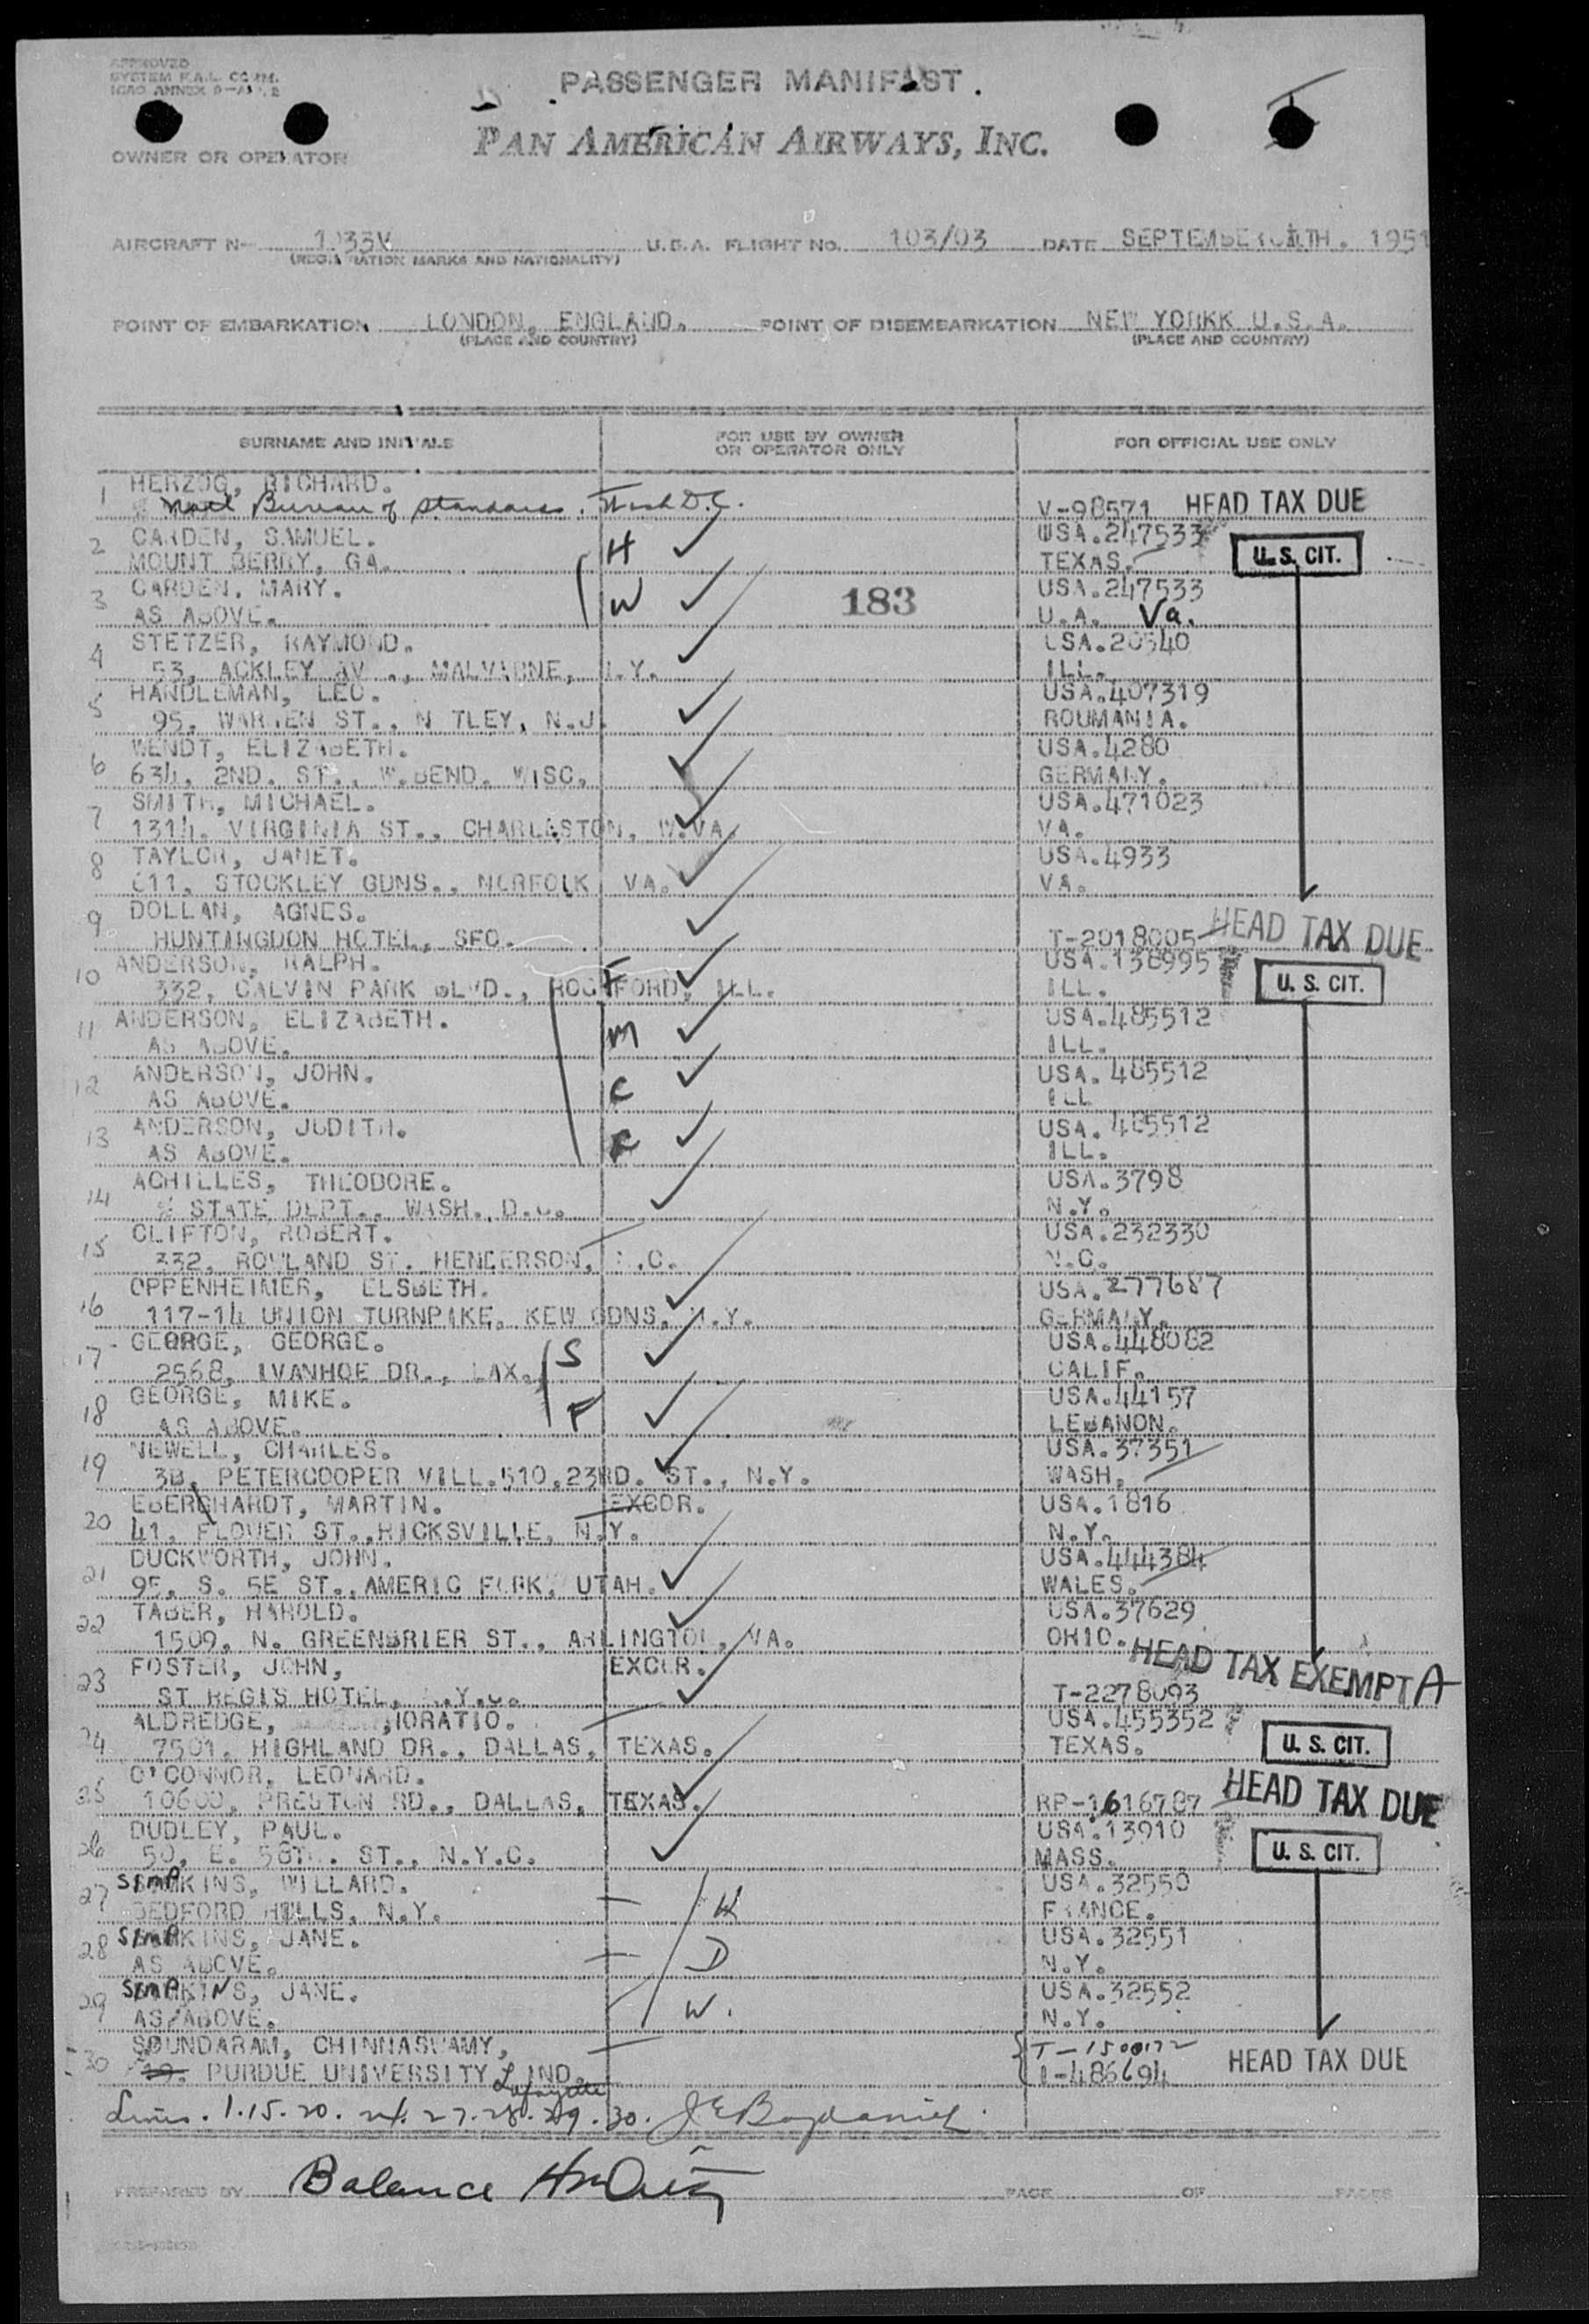 APPROVED
SYSTEM F.A.L. COMM.
ICAO ANNEX 9-
PASSENGER MANIFEST.
PAN AMERICAN AIRWAYS, INC.
OWNER OR OPERATOR
AIRCRAFT N- 1033V U.S.A. FLIGHT NO. 103/03 DATE SEPTEMBER 1951
(REGISTRATION MARKS AND NATIONALITY)
POINT OF EMBARKATION LONDON, ENGLAND. POINT OF DISEMBARKATION NEW YORKK U.S.A.
(PLACE AND COUNTRY) (PLACE AND COUNTRY)
SURNAME AND INITIALS FOR USE BY OWNER OR OPERATOR ONLY FOR OFFICIAL USE ONLY
1 HERZOG, RICHARD.
% Natl Bureau of Standards. Wash D.C. V-98571 HEAD TAX DUE
2 CARDEN, SAMUEL. H USA.247533
MOUNT BERRY, GA. TEXAS. U.S. CIT.
3 CARDEN, MARY. W 183 USA.247533
AS ABOVE. U.A. Va.
4 STETZER, RAYMOND. USA.20540
53, ACKLEY AV., MALVERNE, N.Y. ILL.
5 HANDLEMAN, LEO. USA.407319
95, WARREN ST., N TLEY, N.J. ROUMANIA.
6 WENDT, ELIZABETH. USA.4280
634, 2ND. ST., W.BEND. WISC. GERMANY.
7 SMITH, MICHAEL. USA.471023
1314, VIRGINIA ST., CHARLESTON, W.VA. VA.
8 TAYLOR, JANET. USA.4933
611, STOCKLEY GDNS., NORFOLK VA. VA.
9 DOLLAN, AGNES.
HUNTINGDON HOTEL, SFO. T-2018005 HEAD TAX DUE
10 ANDERSON, RALPH. F USA.138995
332, CALVIN PARK BLVD., ROCKFORD, ILL. ILL. U.S. CIT.
11 ANDERSON, ELIZABETH. M USA.485512
AS ABOVE. ILL.
12 ANDERSON, JOHN. C USA.485512
AS ABOVE. ILL
13 ANDERSON, JUDITH. C USA.485512
AS ABOVE. ILL.
14 ACHILLES, THEODORE. USA.3798
% STATE DEPT., WASH., D.C. N.Y.
15 CLIFTON, ROBERT. USA.232330
332, ROWLAND ST. HENDERSON, N.C. N.C.
16 OPPENHEIMER, ELSBETH. USA.277687
117-14 UNION TURNPIKE, KEW GDNS, N.Y. GERMANY.
17 GEORGE, GEORGE. S USA.448082
2568, IVANHOE DR., LAX. CALIF.
18 GEORGE, MIKE. F USA.44157
AS ABOVE. LEBANON.
19 NEWELL, CHARLES. USA.37351
3B, PETERCOOPER VILL.510,23RD. ST., N.Y. WASH.
20 EBERGHARDT, MARTIN. EXCDR. USA.1816
41, FLOWER ST.,HICKSVILLE, N.Y. N.Y.
21 DUCKWORTH, JOHN. USA.444384
95, S. 5E ST.,AMERIC FORK, UTAH. WALES.
22 TABER, HAROLD. USA.37629
1509, N. GREENBRIER ST., ARLINGTON, VA. OHIO.
23 FOSTER, JOHN, EXCDR. HEAD TAX EXEMPT A
ST REGIS HOTEL, N.Y.C. T-2278093
24 ALDREDGE, HORATIO. USA.455352
7501, HIGHLAND DR., DALLAS, TEXAS. TEXAS. U.S. CIT.
25 O'CONNOR, LEONARD.
10600, PRESTON RD., DALLAS, TEXAS. RP-1616787 HEAD TAX DUE
26 DUDLEY, PAUL. USA.13910
50, E. 58TH. ST., N.Y.C. MASS. U.S. CIT.
27 SIMPKINS, WILLARD. H USA.32550
BEDFORD HILLS, N.Y. FRANCE.
28 SIMPKINS, JANE. D USA.32551
AS ABOVE. N.Y.
29 SIMPKINS, JANE. W. USA.32552
AS ABOVE. N.Y.
30 SOUNDARAM, CHINNASWAMY, T-1500172
PURDUE UNIVERSITY Lafayette IND. I-486694 HEAD TAX DUE
Lines. 1.15.20. 24. 27.28.29.30.
PREPARED BY Balance PAGE OF PAGES